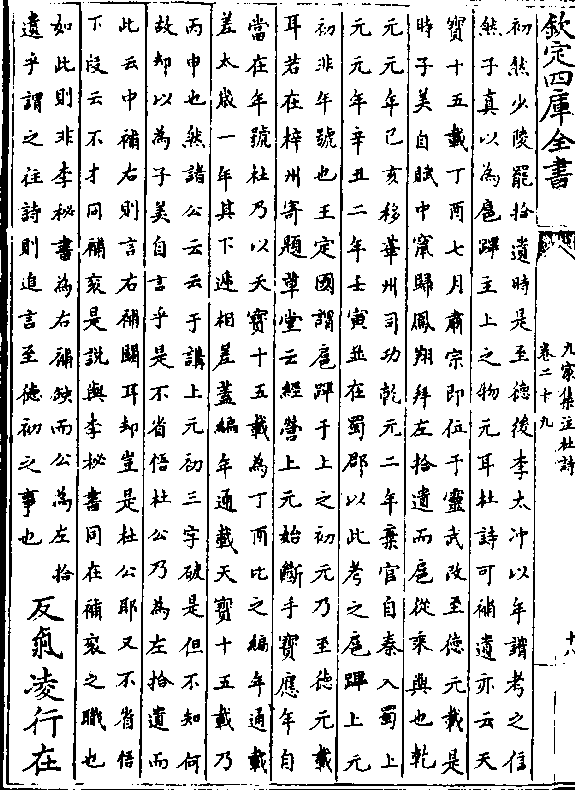 欽定四庫全書
九家集注杜詩
卷二十九
十八
初然少陵罷拾遺時是至德後李太冲以年譜考之信
然子真以為扈蹕主上之物元耳杜詩可補遺亦云天
寶十五載丁酉七月肅宗即位于靈武改至德元載是
時子美自賊中竄歸鳳翔拜左拾遺而扈從乘輿也乾
元元年己亥移華州司功乾元二年棄官自秦入蜀上
元元年辛丑二年壬寅並在蜀郡以此考之扈蹕上元
初非年號也王定國謂扈蹕于上之初元乃至德元載
耳若在梓州寄題草堂云經營上元始斷手寶應年自
當在年號杜乃以天寶十五載為丁酉比之編年通載
差太歳一年其下遞相差蓋編年通載天寶十五載乃
丙申也然諸公云云于講上元初三字破是但不知何
故却以為子美自言乎是不省悟杜公乃為左拾遺而
此云中補右則言右補闕耳却豈是杜公耶又不省悟
下段云不才同補衮是説與李秘書同在補衮之職也
如此則非李秘書為右補缺而公為左拾
遺乎謂之往詩則追言至德初之事也
反氣凌行在